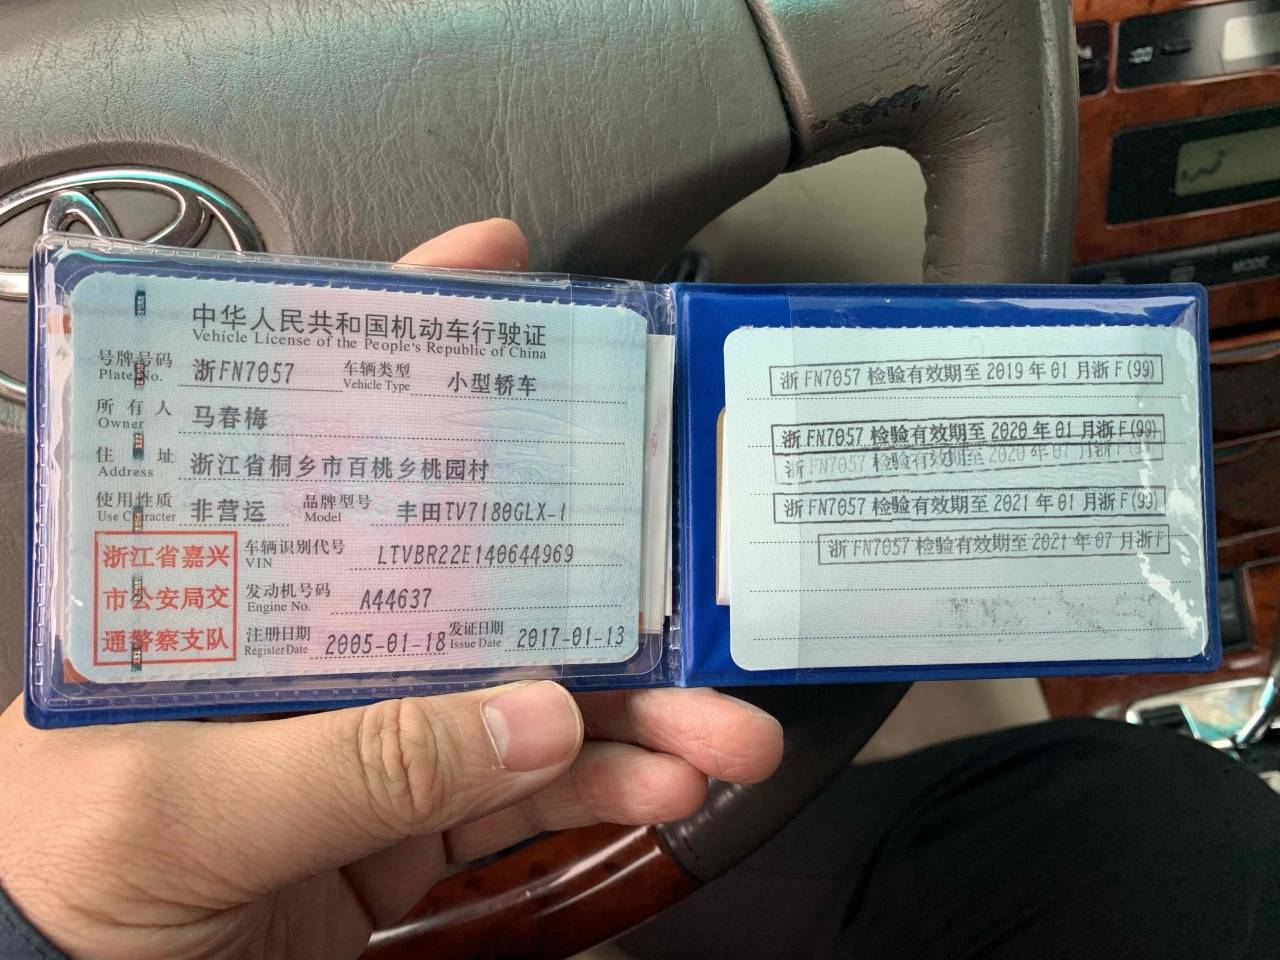 中华人民共和国机动车行驶证
Vehicle License of the People's Republic of China
号牌号码 浙FN7057 车辆类型 小型轿车
Plate No. Vehicle Type
所有人 马春梅
Owner
住址 浙江省桐乡市百桃乡桃园村
Address
使用性质 非营运 品牌型号 丰田TV7180GLX-I
Use Character Model
浙江省嘉兴
市公安局交
通警察支队
车辆识别代号 LTVBR22E140644969
VIN
发动机号码 A44637
Engine No.
注册日期 2005-01-18 发证日期 2017-01-13
Register Date Issue Date
浙FN7057检验有效期至2019年01月浙F(99)
浙FN7057检验有效期至2020年01月浙F(99)
浙FN7057检验有效期至2020年07月浙F(99)
浙FN7057检验有效期至2021年01月浙F(99)
浙FN7057检验有效期至2021年07月浙F
MODE